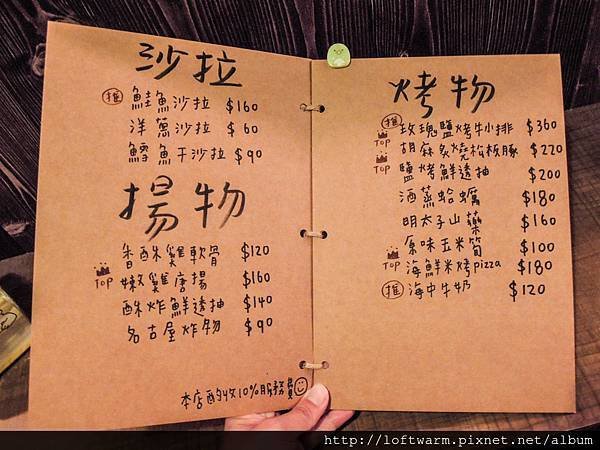 沙拉
推 鮭魚沙拉 $160
洋蔥沙拉 $60
鱈魚干沙拉 $90
揚物
香酥雞軟骨 $120
TOP 嫩雞唐揚 $160
酥炸鮮透抽 $140
名古屋炸物 $90
本店酌收10%服務員
烤物
推 玫瑰鹽烤牛小排 $360
TOP 胡麻炙燒松板豚 $220
TOP 鹽烤鮮透抽 $200
酒蒸蛤蠣 $180
明太子山藥 $160
原味玉米筍 $100
TOP 海鮮米烤pizza $180
推 海中牛奶 $120
http://loftwarm.pixnet.net/album